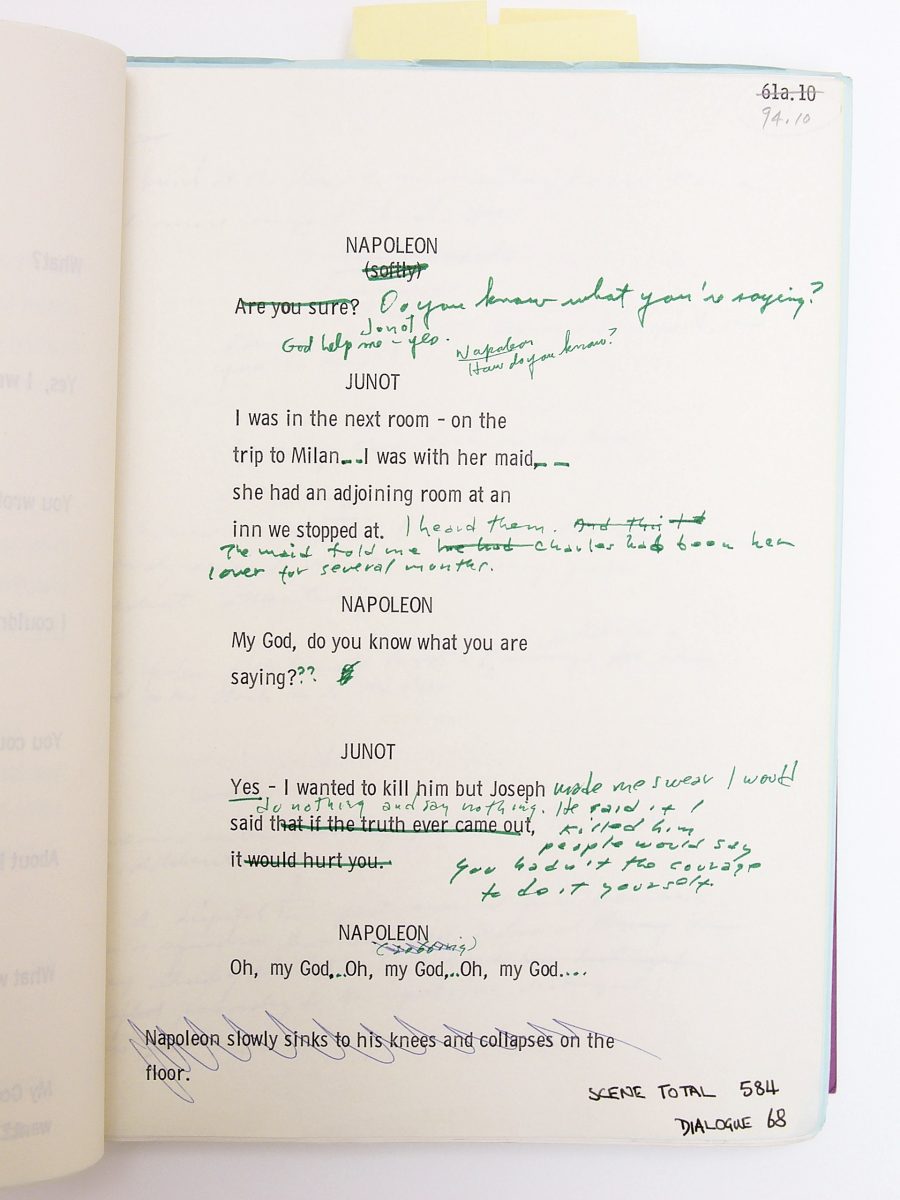 61a.10
94.10
NAPOLEON
(softly)
Are you sure? Do you know what you're saying?
Junot
God help me – yes.
Napoleon
How do you know?
JUNOT
I was in the next room - on the
trip to Milan...I was with her maid, --
she had an adjoining room at an
inn we stopped at. I heard them. And this
The maid told me he had Charles had been her
lover for several months.
NAPOLEON
My God, do you know what you are
saying???
JUNOT
Yes - I wanted to kill him but Joseph made me swear I would
do nothing and say nothing. He said if I
said that if the truth ever came out, killed him
people would say
it would hurt you. you hadn't the courage
to do it yourself.
NAPOLEON
(sobbing)
Oh, my God...Oh, my God...Oh, my God....
Napoleon slowly sinks to his knees and collapses on the
floor.
SCENE TOTAL 584
DIALOGUE 68
What?
Yes, I
You
I
You
About
What
My